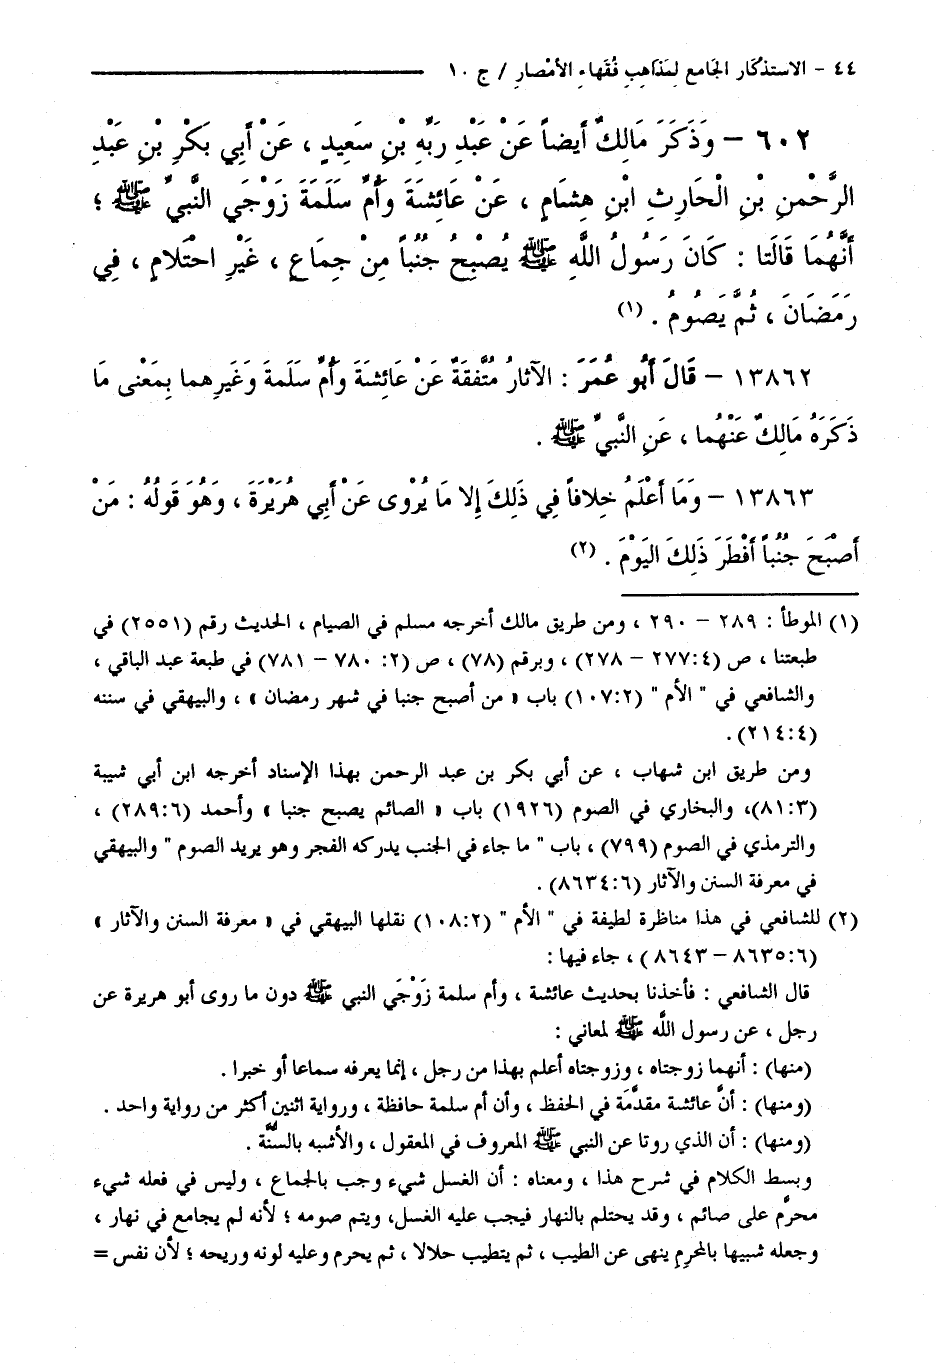 ٤٤ - الاستذكار الجامع لمَذاهِبِ فُقَهاء الأمْصار / ج ١٠
٦٠٢ – وَذَكَرَ مَالِكٌ أيضاً عَنْ عَبْدِ رَبِّهِ بْنِ سَعِيدٍ ، عَنْ أَبِي بَكْرِ بْنِ عَبْدِ
الرَّحْمنِ بْنِ الْحَارِثِ ابْنِ هِشَامٍ ، عَنْ عَائِشَةَ وَأُمِّ سَلَمَةَ زَوْجَيِ النَّبِيِّ ﷺ ؛
أَنَّهُمَا قَالَتَا : كَانَ رَسُولُ اللَّهِ ﷺ يُصْبِحُ جُنُباً مِنْ جِمَاعٍ ، غَيْرِ احْتَلامٍ ، فِي
رَمَضَانَ ، ثُمَّ يَصُومُ . (١)
١٣٨٦٢ – قَالَ أَبُو عُمَرَ : الآثارُ مُتَّفقَةٌ عَنْ عَائِشَةَ وَأُمِّ سَلَمةَ وَغَيرِهما بِمَعْنى مَا
ذَكَرَهُ مَالِكٌ عَنْهُما ، عَنِ النَّبِيِّ ﷺ .
١٣٨٦٣ – وَمَا أَعْلَمُ خِلافاً فِي ذَلِكَ إِلا مَا يُرْوى عَنْ أَبِي هُرَيْرَةَ ، وَهُوَ قَولُهُ : مَنْ
أَصْبَحَ جُنُباً أَفْطَرَ ذَلِكَ اليَوْمَ . (٢)
(١) الموطأ : ٢٨٩ – ٢٩٠ ، ومن طريق مالك أخرجه مسلم في الصيام ، الحديث رقم (٢٥٥١) في
طبعتنا ، ص (٤:٢٧٧ – ٢٧٨) ، وبرقم (٧٨) ، ص (٢: ٧٨٠ – ٧٨١) في طبعة عبد الباقي ،
والشافعي في " الأم " (٢:١٠٧) باب « من أصبح جنبا في شهر رمضان » ، والبيهقي في سننه
(٤:٢١٤).
ومن طريق ابن شهاب ، عن أبي بكر بن عبد الرحمن بهذا الإسناد أخرجه ابن أبي شيبة
(٣:٨١)، والبخاري في الصوم (١٩٢٦) باب « الصائم يصبح جنبا » وأحمد (٦:٢٨٩) ،
والترمذي في الصوم (٧٩٩) ، باب " ما جاء في الجنب يدركه الفجر وهو يريد الصوم " والبيهقي
في معرفة السنن والآثار (٦:٨٦٣٤) .
(٢) للشافعي في هذا مناظرة لطيفة في " الأم " (٢:١٠٨) نقلها البيهقي في « معرفة السنن والآثار »
(٦:٨٦٣٥ – ٨٦٤٣ ) ، جاء فيها :
قال الشافعي : فأخذنا بحديث عائشة ، وأم سلمة زَوْجَي النبي ﷺ دون ما روى أبو هريرة عن
رجل ، عن رسول اللَّه ﷺ لمعاني :
(منها) : أنهما زوجتاه ، وزوجتاه أعلم بهذا من رجل ، إنما يعرفه سماعا أو خبرا .
(ومنها) : أنَّ عائشة مقدَّمَة في الحفظ ، وأن أم سلمة حافظة ، ورواية اثنين أكثر من رواية واحد .
(ومنها) : أن الذي روتا عن النبي ﷺ المعروف في المعقول ، والأشبه بالسنَّة .
وبسط الكلام في شرح هذا ، ومعناه : أن الغسل شيء وجب بالجماع ، وليس في فعله شيء
محرَّم على صائم ، وقد يحتلم بالنهار فيجب عليه الغسل، ويتم صومه ؛ لأنه لم يجامع في نهار ،
وجعله شبيها بالمحرِم ينهى عن الطيب ، ثم يتطيب حلالا ، ثم يحرم وعليه لونه وريحه ؛ لأن نفس =